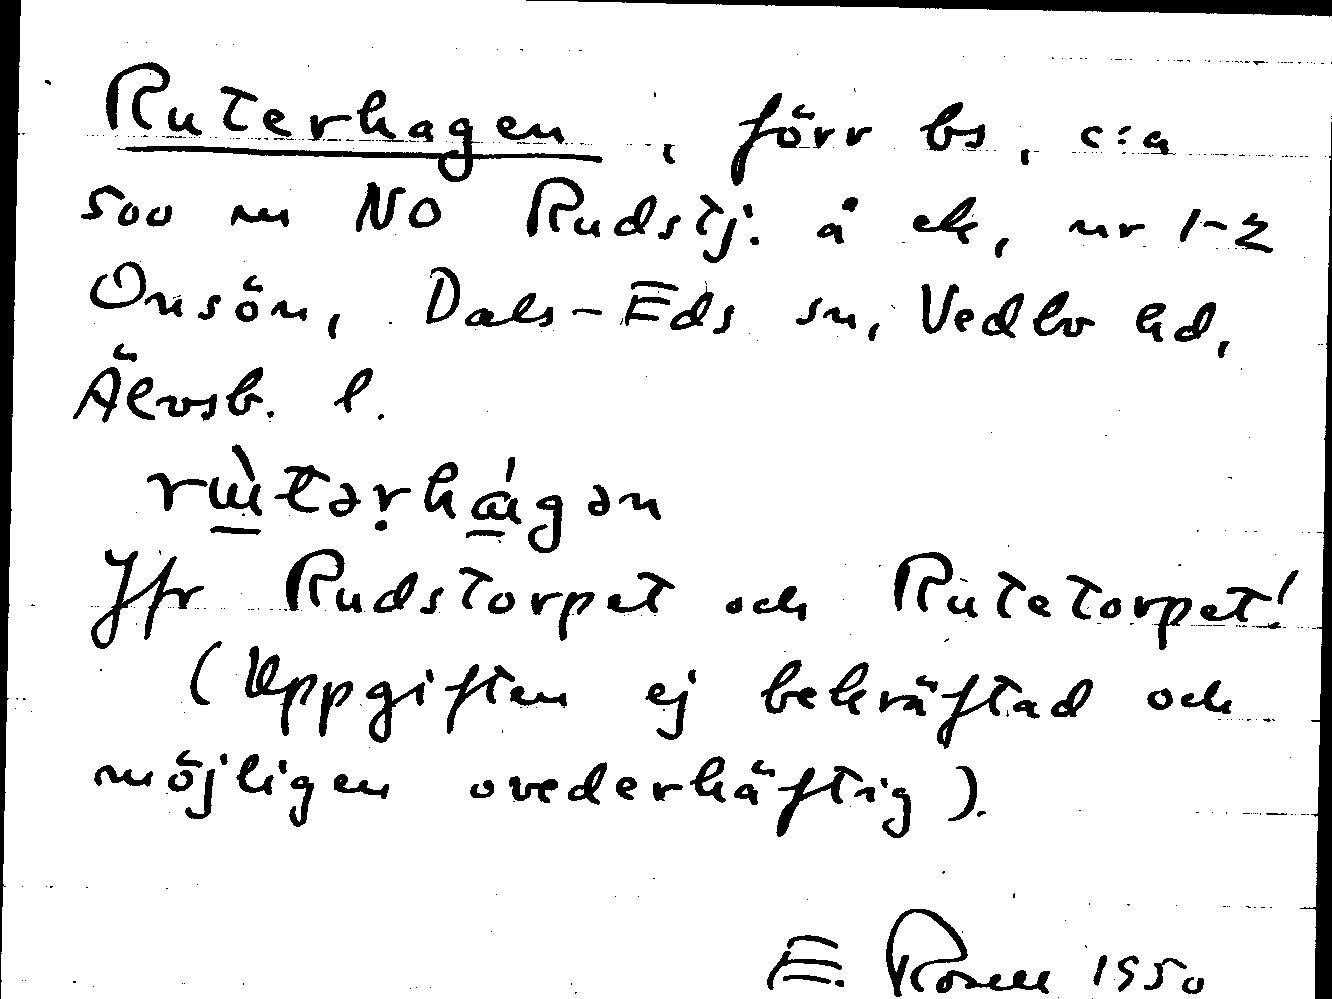 Ruterhagen, förr bs, c:a
500 m NO Rudstj. å ek, nr 1-2
Onsön, Dals-Eds sn, Vedbo hd,
Älvsb. l.
Jfr Rudstorpet och Rutetorpet!
(Uppgiften ej bekräftad och
möjligen ovederhäftig).
E. Rosell 1950